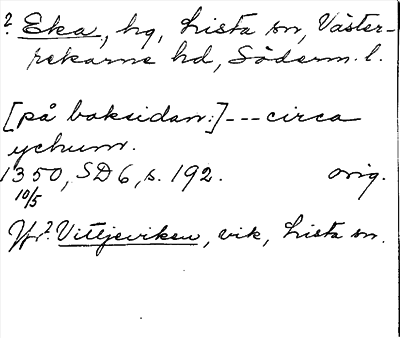 ? Eka, hg, Lista sn, Väster-
rekarne hd, Söderm. l.
[på baksidan:] --- circa
ychum.
1350, SD 6, s. 192. orig.
10/5
Jfr ? Vittjeviken, vik, Lista sn.